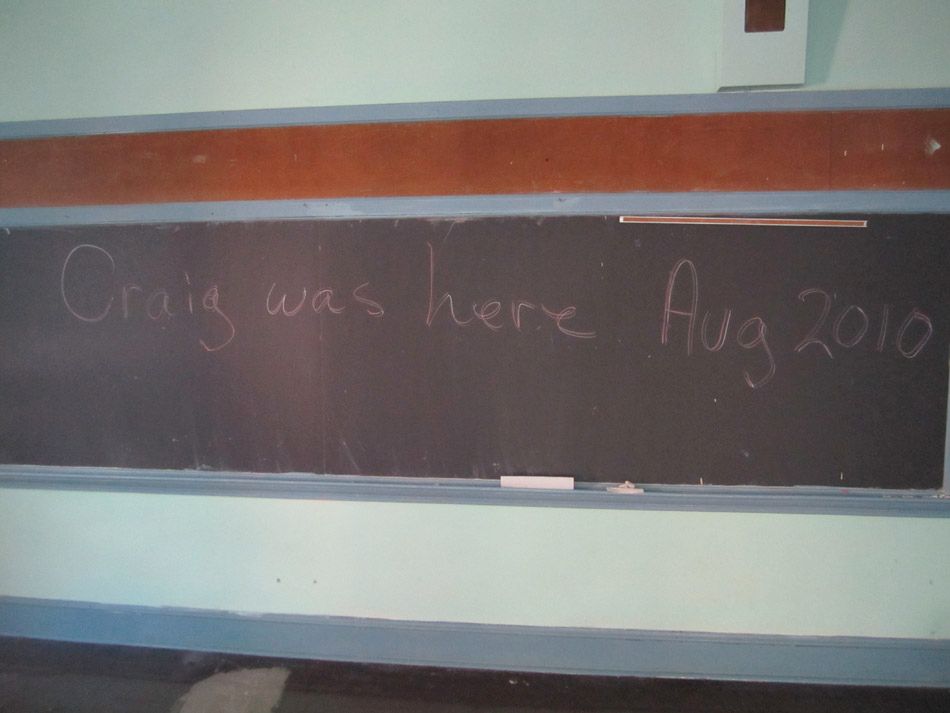 Craig was here Aug 2010